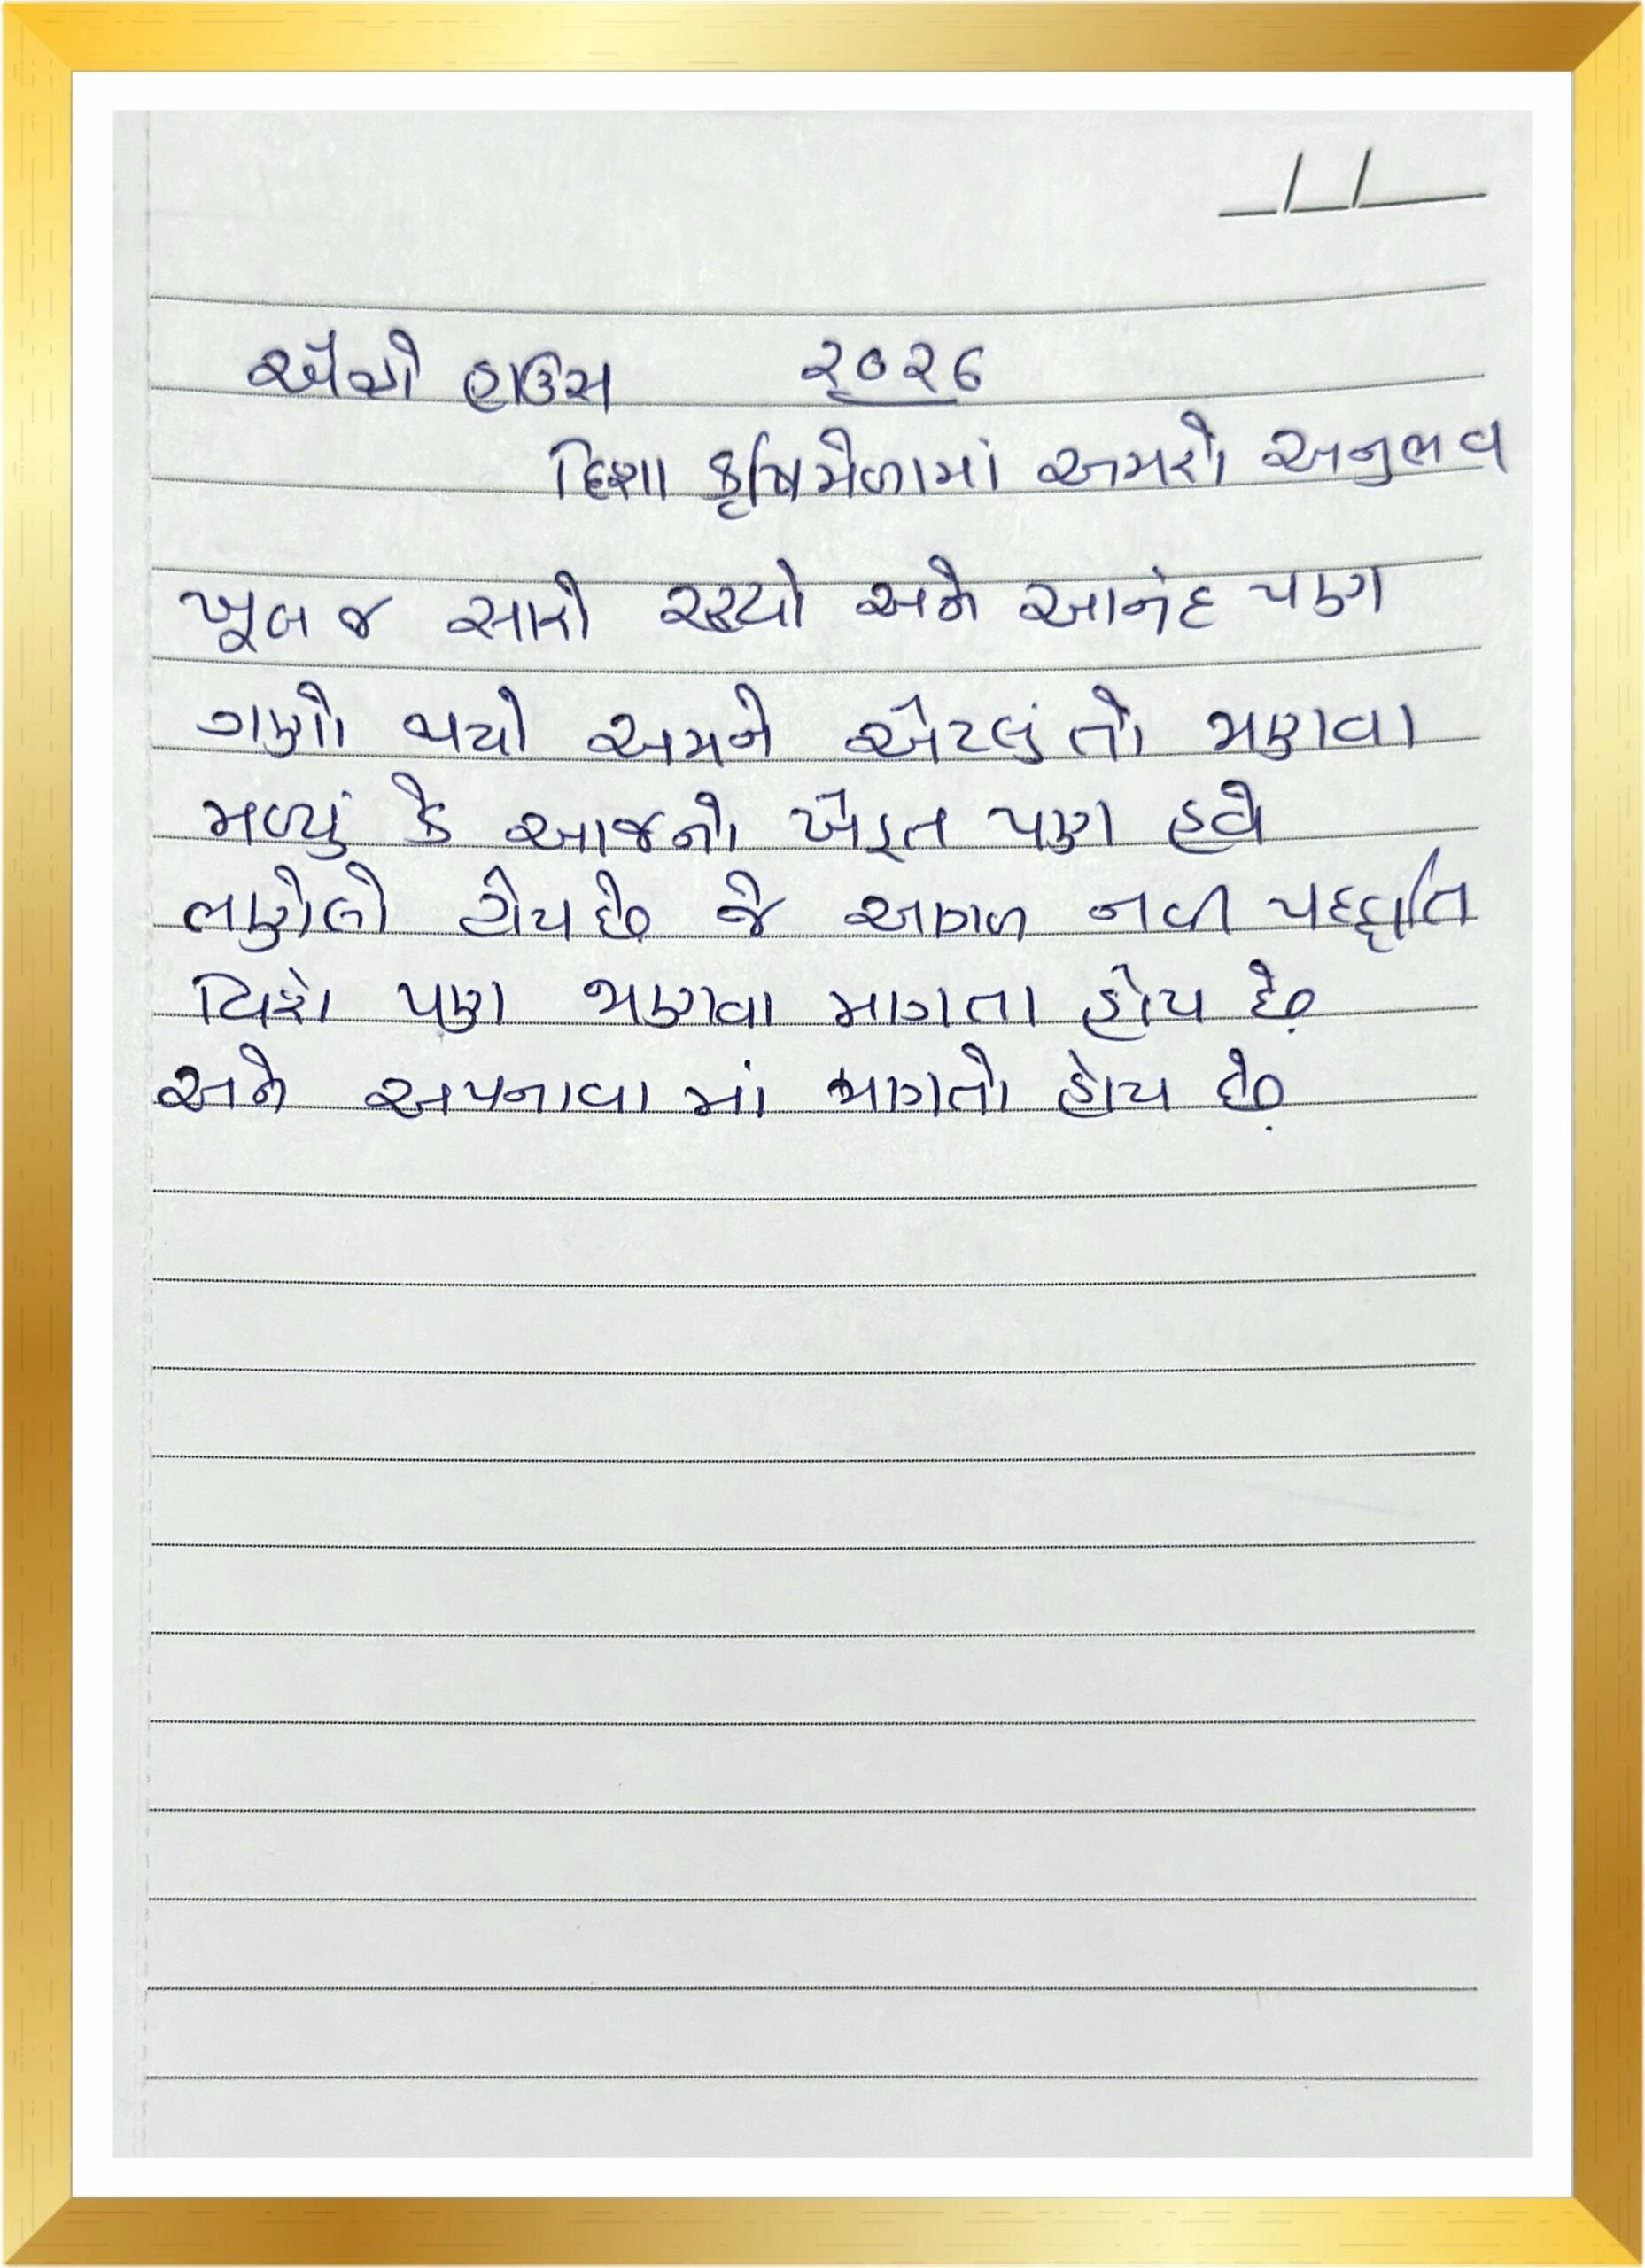 એગ્રો હાઉસ ૨૦૨૬
દિશા કૃષિમેળામાં અમરો અનુભવ
ખૂબ જ સારો રહ્યો અને આનંદ પણ
ગણો થયો અમને એટલું તો જાણવા
મળ્યું કે આજનો ખેડૂત પણ હવે
ભણેલો હોય છે જે અગળ નવી પદ્ધતિ
વિશે પણ જાણવા માગતા હોય છે
અને અપનાવા માં માગતો હોય છે.